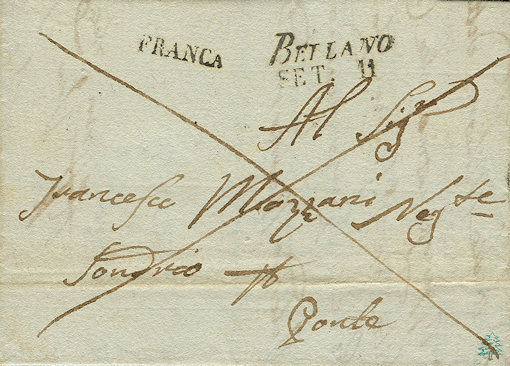 FRANCA BELLANO
SET. 11
Al Sigr
Francesco Mozzani Negte
Sondrio p
Ponte